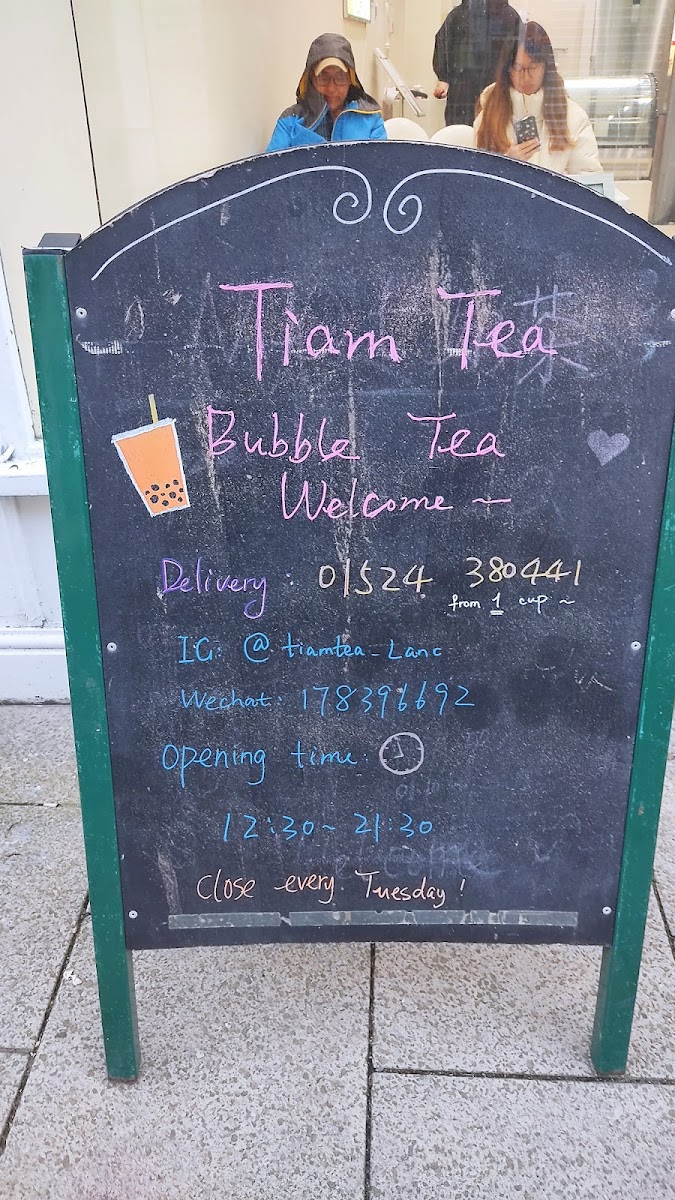 Tiam Tea 茶
Bubble Tea
Welcome ~
Delivery 01524 380441
from 1 cup ~
IG: @ tiamtea_Lanc
Wechat: 178396692
Opening time:
12:30~ 21:30
Close every Tuesday!